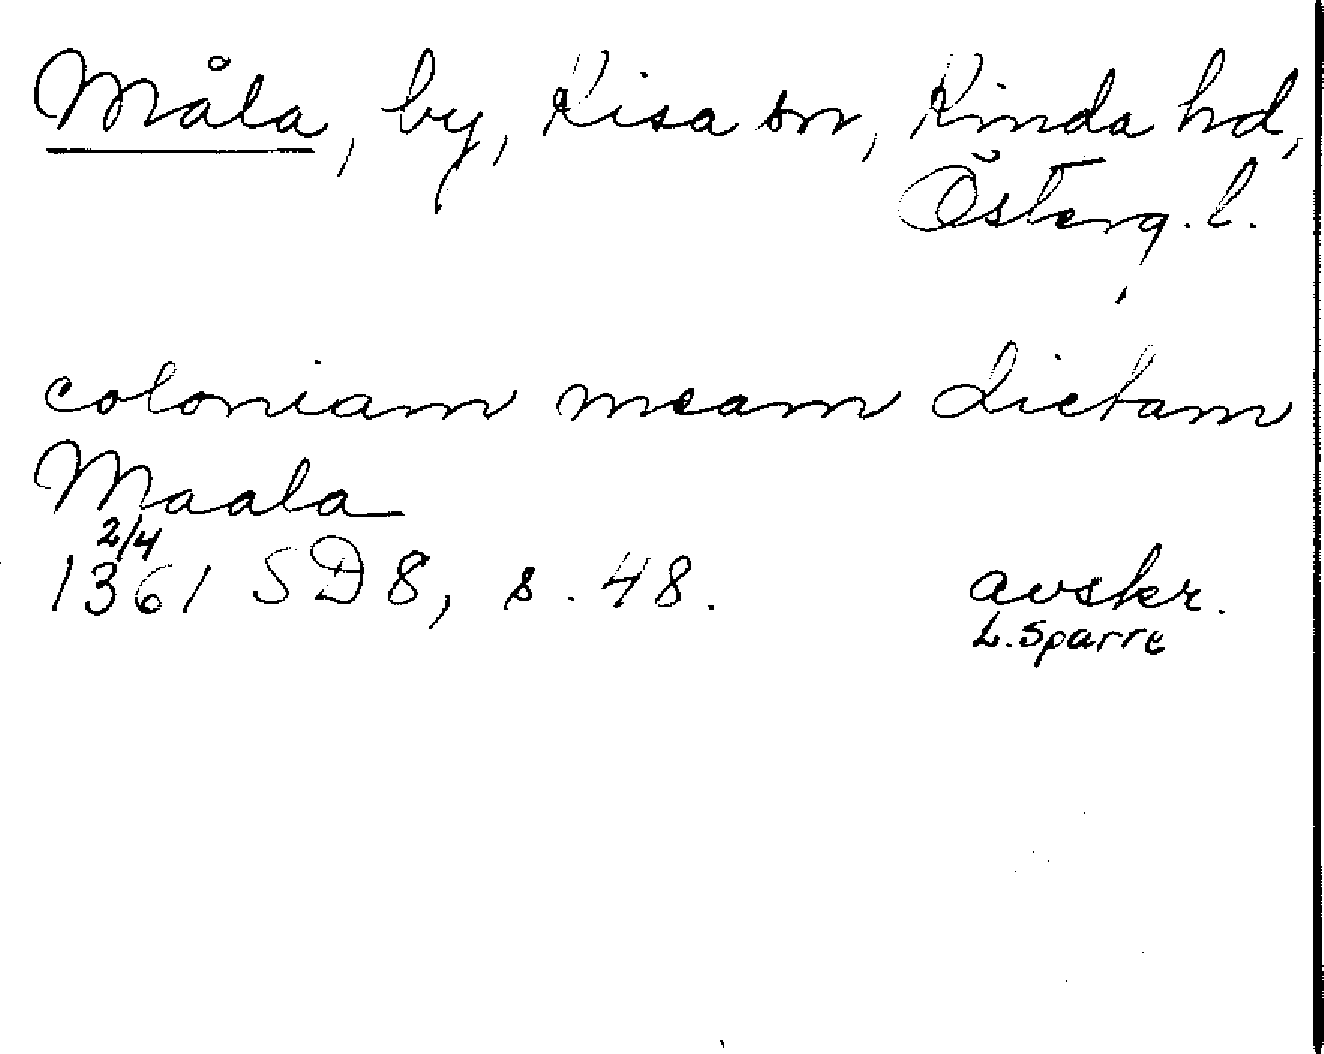 Måla, by, Kisa sn, Kinda hd,
Österg. l.
coloniam meam dictam
Maala
2/4
1361 SD 8, s. 48. avskr.
L. Sparre